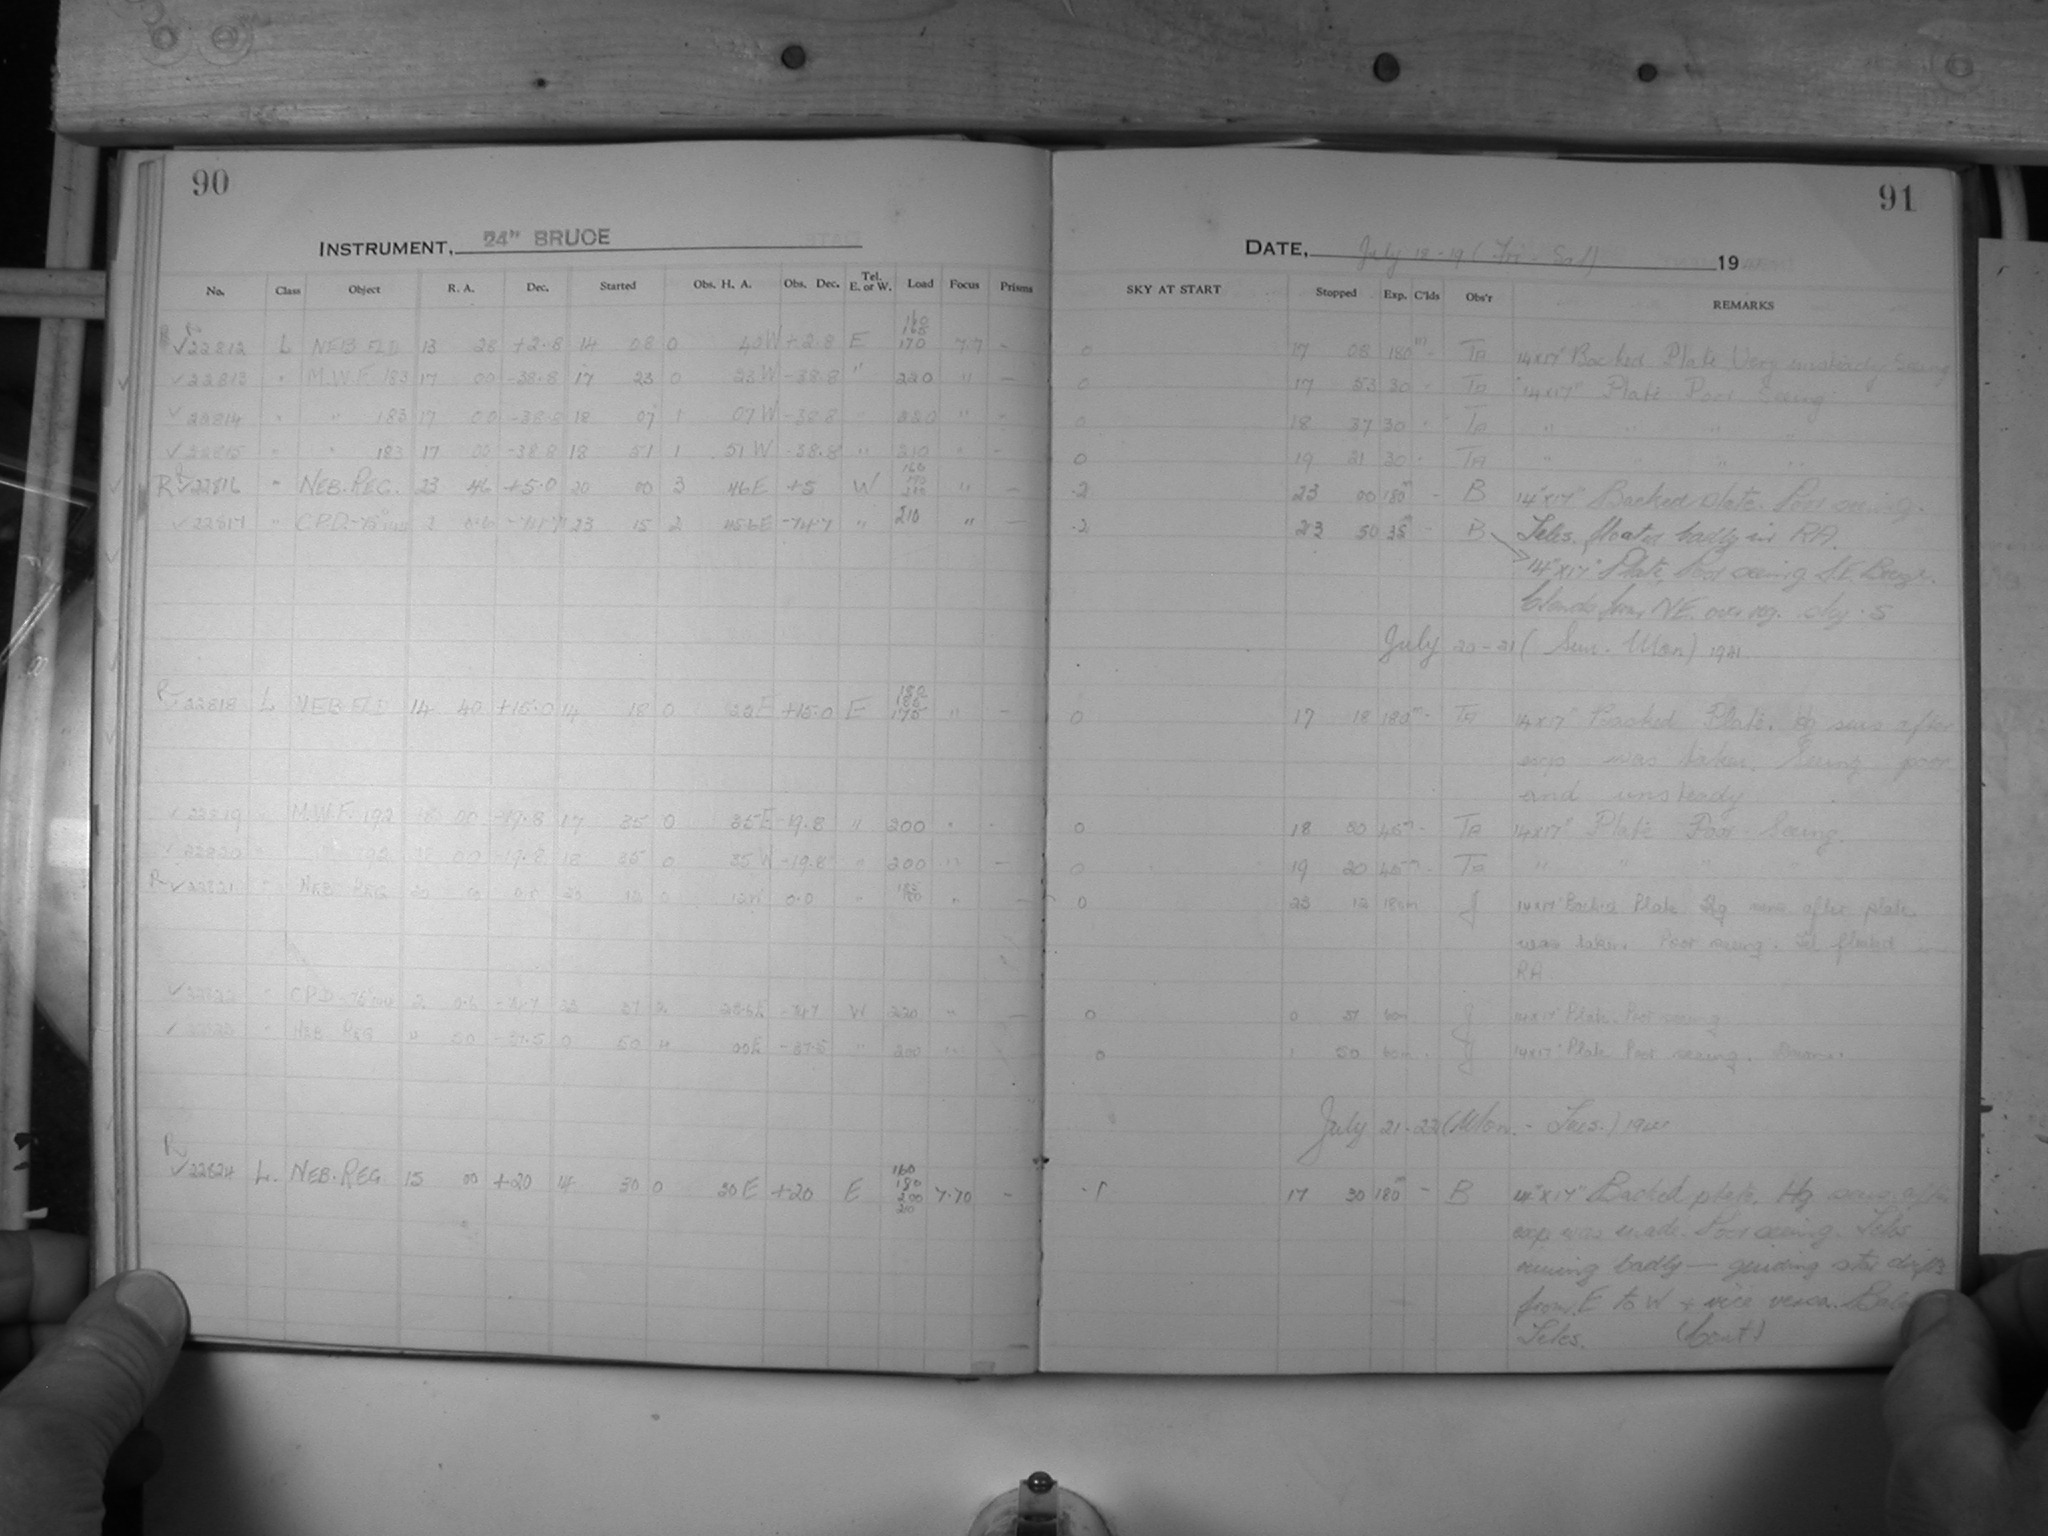 90
INSTRUMENT, 24" BRUCE
No. Class Object R. A. Dec. Started Obs. H. A. Obs. Dec. Tel. E. or W. Load Focus Prisms
160
165
√22812 L NEB FLD 13 28 +2.8 14 08 0 40W +2.8 E 170 7.7 -
√22813 " M.W.F. 183 17 00 -38.8 17 23 0 23W -38.8 " 220 " -
√22814 " " 183 17 00 -38.8 18 07 1 07W -38.8 " 220 " -
√22815 " " 183 17 00 -38.8 18 51 1 51W -38.8 " 210 " -
R √22816 " NEB. REG. 23 46 +5.0 20 00 3 46E +5 W 160 " -
√22817 " CPD-75° 2 0.6 -74.7 23 15 2 45.6E -74.7 " 210 " -
R √22818 L NEB FLD 14 40 +15.0 14 18 0 22E +15.0 E 180 185 175 " -
√22819 " M.W.F. 192 18 00 -19.8 17 35 0 35E -19.8 " 200 " -
√22820 " " 192 18 00 -19.8 18 35 0 35W -19.8 " 200 " -
R √22821 " NEB REG 0.0 " -
√22822 " CPD-75° 2 0.6 -74.7 -74.7 W 220 " -
NEB REG 0 50 -37.5 0 50 00E -37.5 " 200 "
R √22824 L. NEB. REG 15 00 +20 14 30 0 30E +20 E 160 180 200 210 7.70 -
91
DATE, July 18-19 (Fri - Sat) 19
SKY AT START Stopped Exp. C'lds Obs'r REMARKS
0 17 08 180m - TA 14x17" Backed Plate Very unsteady Seeing
0 17 53 30 - TA 14x17" Plate Poor Seeing
0 18 37 30 - TA " " " "
0 19 21 30 - TA " " " "
.2 23 00 180m - B 14"x17" Backed plate. Poor seeing.
.2 23 50 35m - B Teles. floated badly in RA.
14"x17" Plate Poor seeing S.E. Breeze.
Clouds from NE. over reg. sky .5
July 20-21 (Sun. Mon) 1941
0 17 18 180m - TA 14x17" Backed Plate. Hg sens after
exp was taken. Seeing poor
and unsteady
0 18 20 45m - TA 14x17" Plate Poor Seeing.
0 19 20 45m - TA " " " "
0 23 12 180m J 14x17" Backed Plate Hg sens. after plate
was taken. Poor seeing. Tel floated in
RA
0 0 37 60m J 14x17" Plate. Poor seeing
0 1 50 60m J 14x17" Plate Poor seeing.
July 21-22 (Mon. - Tues.) 1941
.1 17 30 180m - B 14"x17" Backed plate. Hg sens. after
exp. was made. Poor seeing. Teles
running badly — guiding star drifts
from E to W + vice versa.
Teles. (Cont)